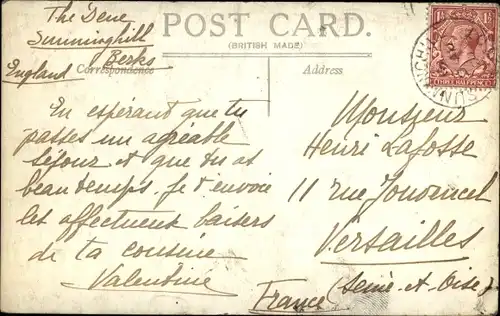 The Dene
Sunninghill
Berks
England
POST CARD.
(BRITISH MADE)
Correspondence
Address
En espérant que tu
passes un agréable
séjour et que tu as
beau temps. Je t'envoie
les affectueux baisers
de ta cousine
Valentine
Monsieur
Henri Lafosse
11 rue Jouvencel
Versailles
(Seine-et-Oise)
France
THREE HALFPENCE